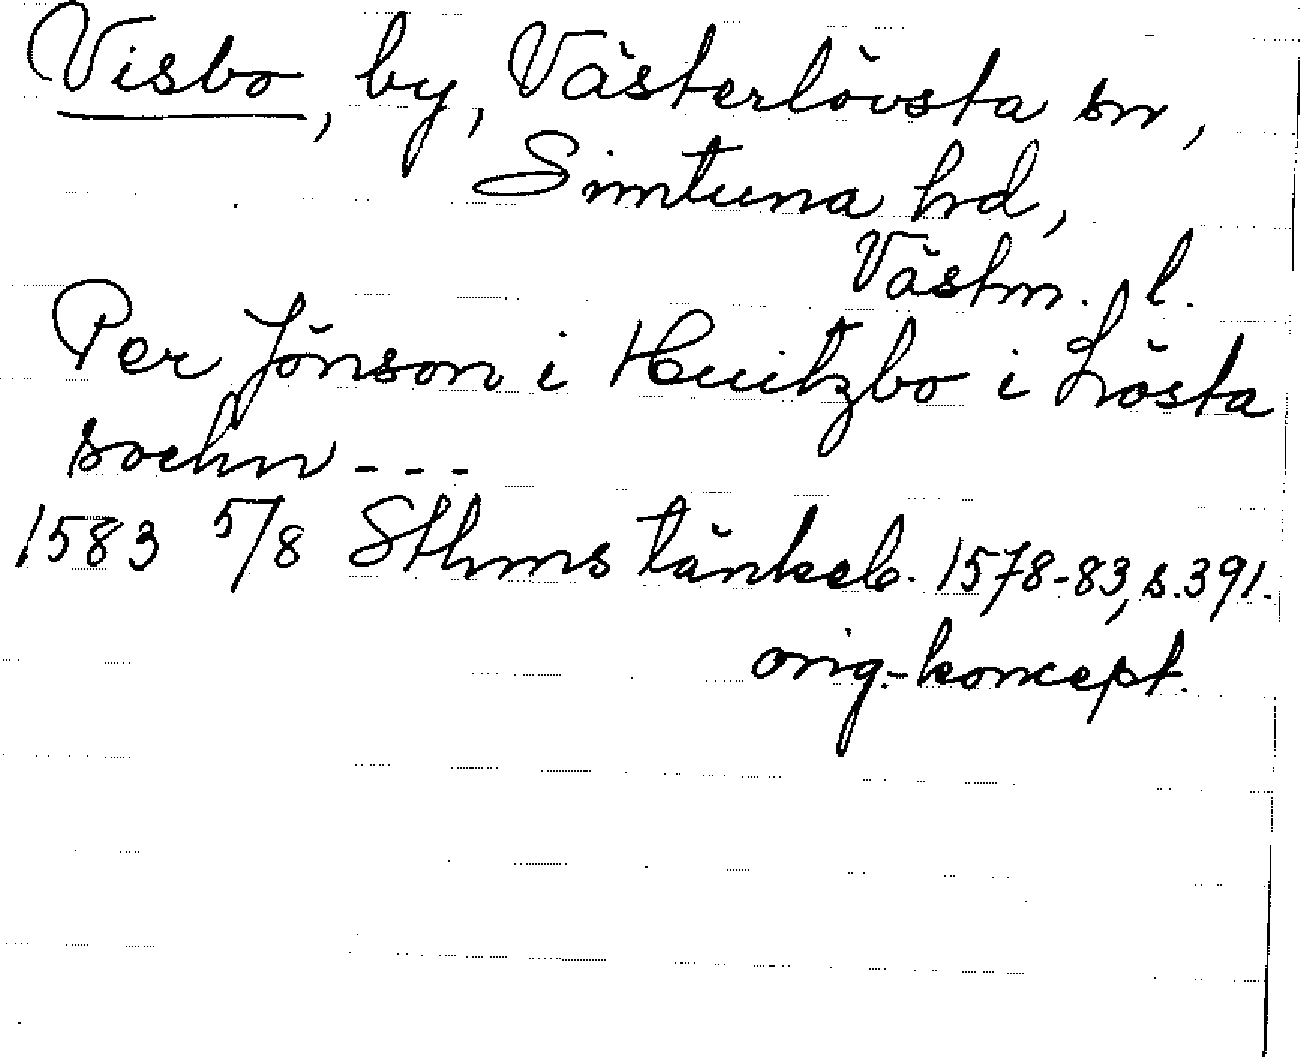 Visbo, by, Västerlövsta sn,
Simtuna hd,
Västm. l.
Per Jönson i Huitzbo i Lösta
sochn - - -
1583 5/8 Sthms tänkeb. 1578-83, s. 391.
orig.-koncept.